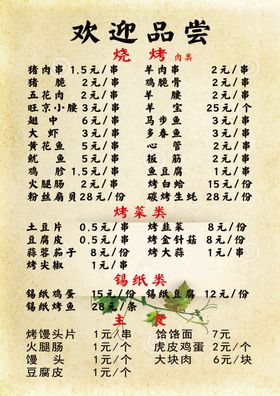 欢迎品尝
烧 烤 肉类
猪肉串 1.5元/串 羊肉串 2元/串
猪 脆 2元/串 鸡脆骨 2元/串
五花肉 2元/串 羊 腰 2元/串
旺京小腰 3元/串 羊 宝 25元/个
翅 中 6元/串 马步鱼 2元/串
大 虾 3元/串 多春鱼 3元/串
黄花鱼 5元/串 心 管 2元/串
鱿 鱼 5元/串 板 筋 2元/串
鸡 胗 1.5元/串 鱼豆腐 1元/串
火腿肠 2元/串 烤白蛤 15元/份
粉丝扇贝 28元/份 碳烤生蚝 28元/份
烤菜类
土豆片 0.5元/串 烤韭菜 8元/份
豆腐皮 0.5元/串 烤金针菇 8元/份
蒜蓉茄子 8元/份 烤大蒜 1元/串
烤尖椒 1元/串
锡纸类
锡纸鸡蛋 15元/份 锡纸豆腐 12元/份
锡纸烤鱼 28元/条
主 食
烤馒头片 1元/串 饸饹面 7元
火腿肠 1元/个 虎皮鸡蛋 2元/个
馒 头 1元/个 大块肉 6元/块
豆腐皮 1元/个